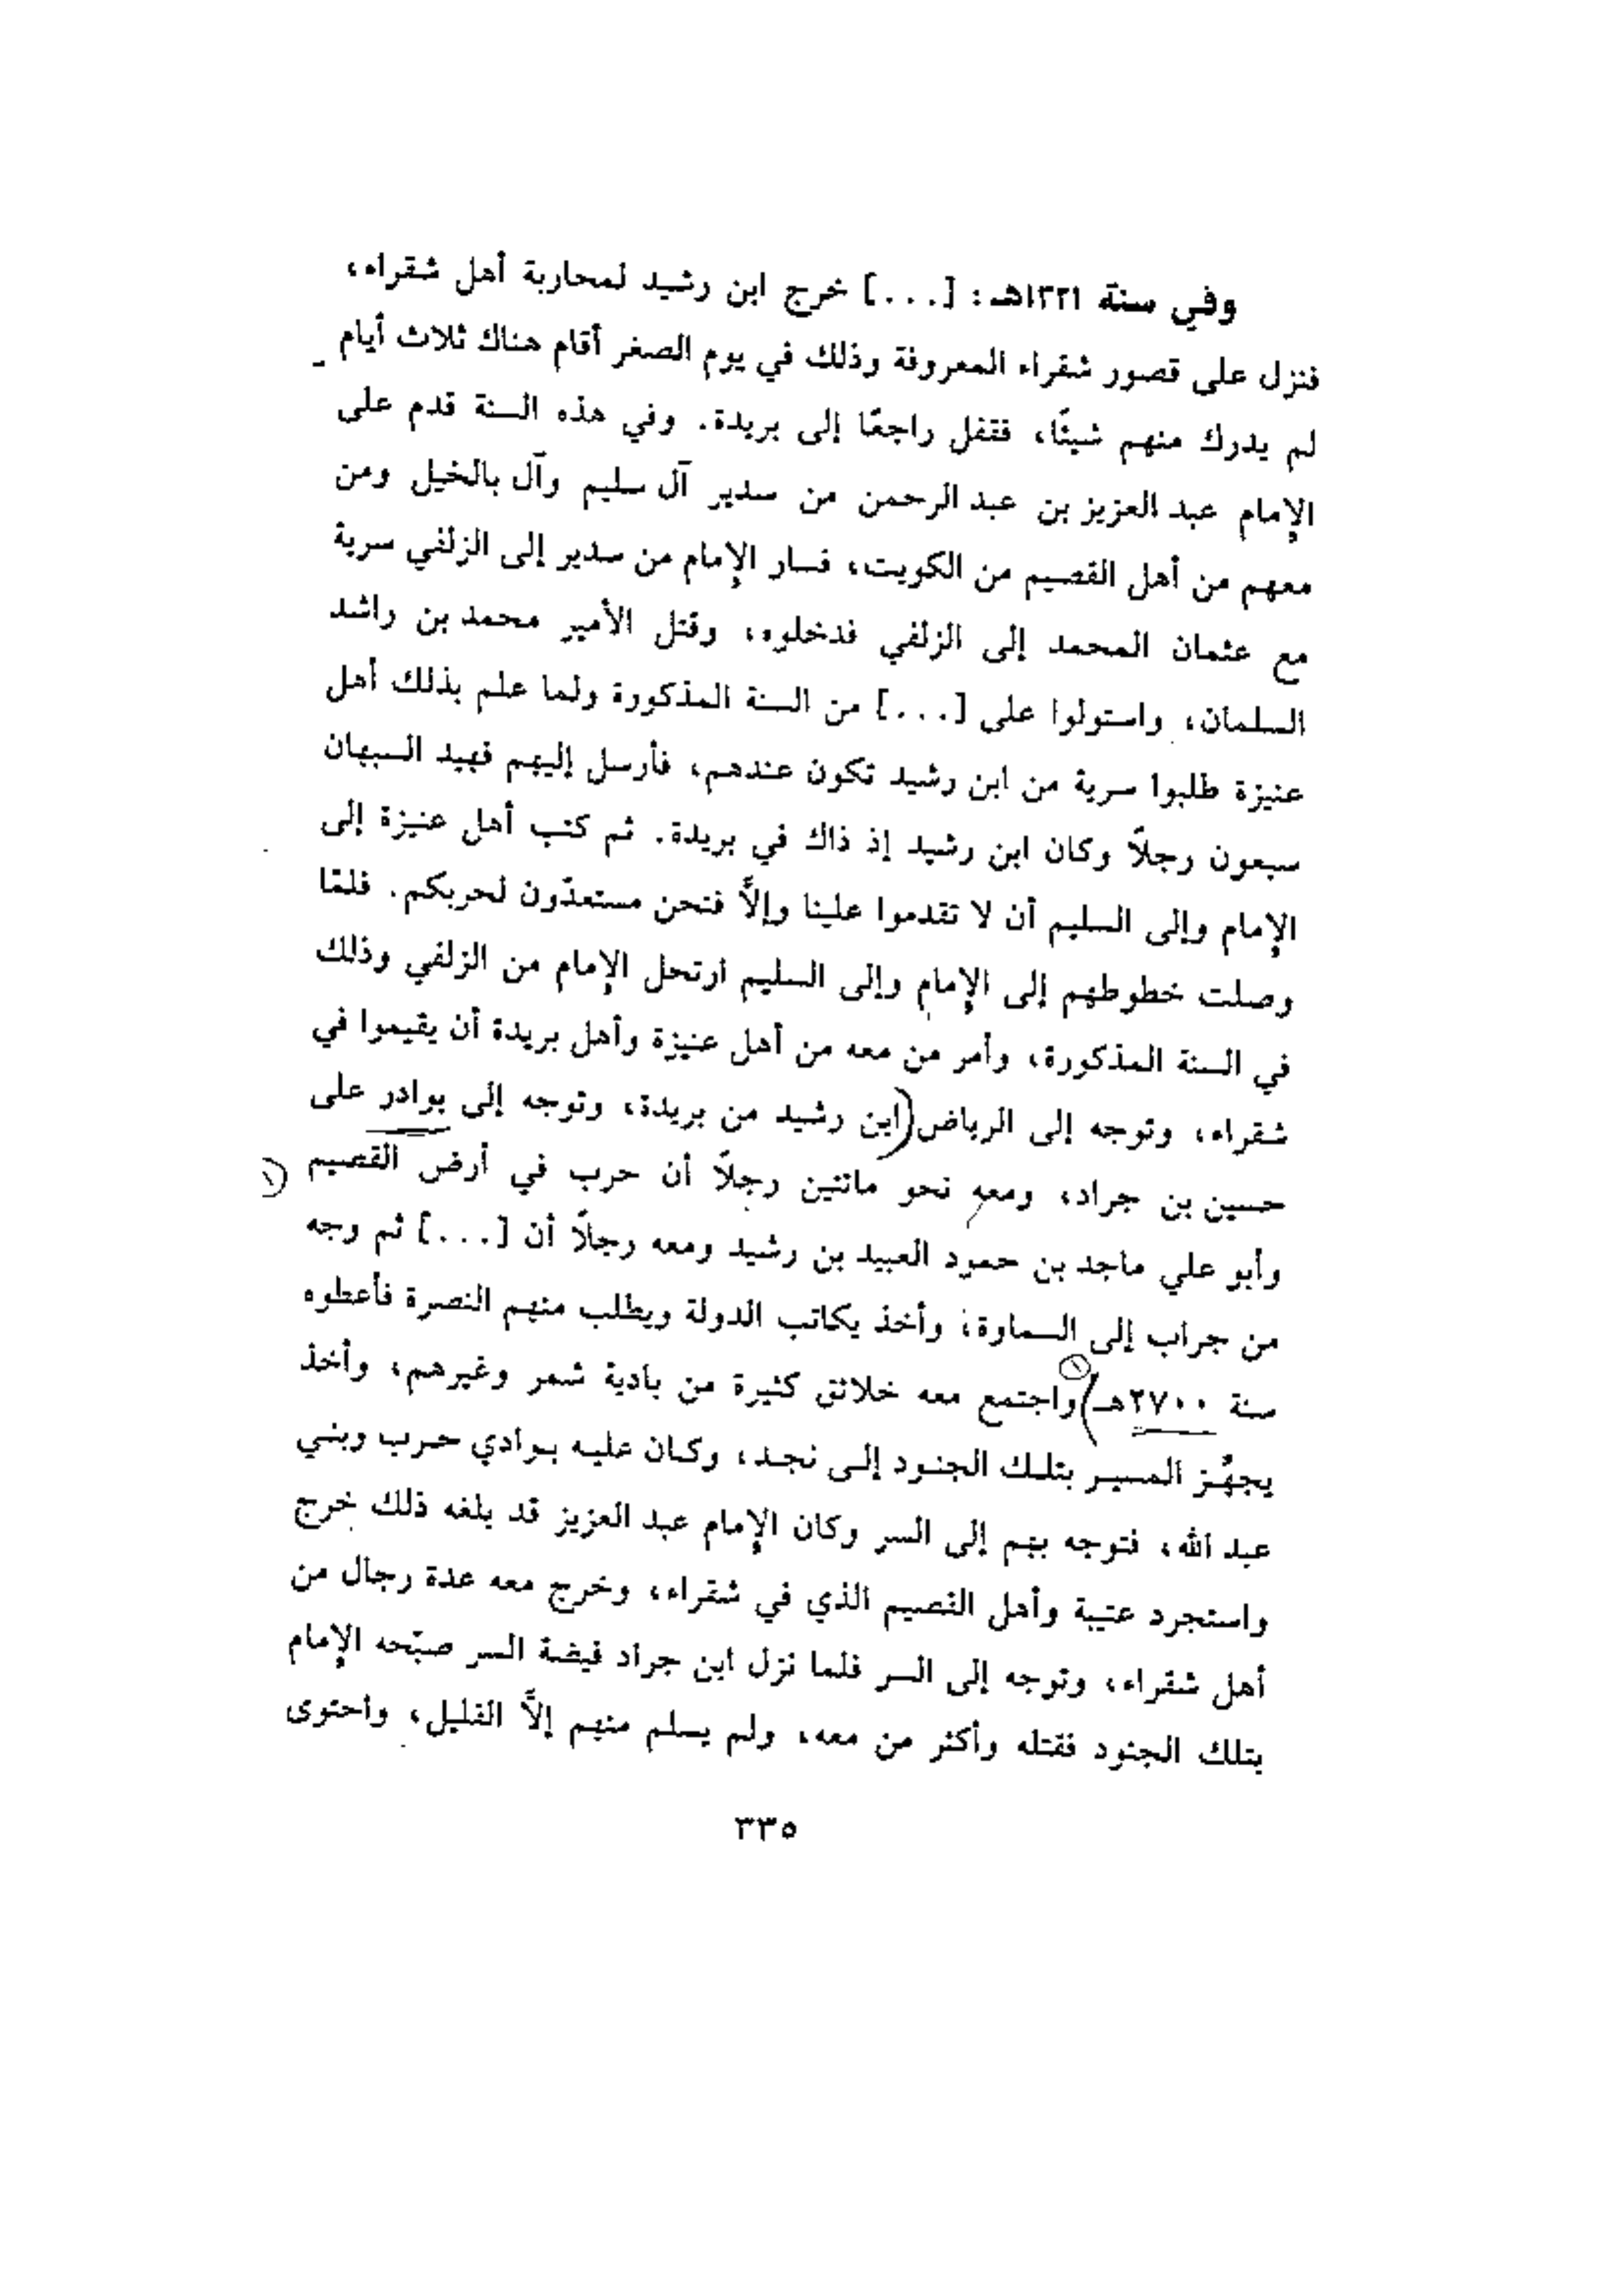 وفي سنة ١٣٢١هـ: [...] خرج ابن رشيد لمحاربة أهل شقراء،
فنزل على قصور شقراء المعروفة وذلك في يوم الصغر أقام هناك ثلاث أيام
لم يدرك منهم شيئًا، فقفل راجعًا إلى بريدة. وفي هذه السنة قدم على
الإمام عبد العزيز بن عبد الرحمن من سدير آل سليم وآل بالخيل ومن
معهم من أهل القصيم من الكويت، فسار الإمام من سدير إلى الزلفي سرية
مع عثمان المحمد إلى الزلفي فدخلوه، وقتل الأمير محمد بن راشد
السلمان، واستولوا على [...] من السنة المذكورة ولما علم بذلك أهل
عنيزة طلبوا سرية من ابن رشيد تكون عندهم، فأرسل إليهم فهيد السبهان
سبعون رجلاً وكان ابن رشيد إذ ذاك في بريدة. ثم كتب أهل عنيزة إلى
الإمام وإلى السليم أن لا تقدموا علينا وإلاَّ فنحن مستعدّون لحربكم. فلمّا
وصلت خطوطهم إلى الإمام وإلى السليم ارتحل الإمام من الزلفي وذلك
في السنة المذكورة، وأمر من معه من أهل عنيزة وأهل بريدة أن يقيموا في
شقراء، وتوجه إلى الرياض (ابن رشيد من بريدة، وتوجه إلى بوادر على
حسين بن جراد، ومعه نحو مائتين رجلاً أن حرب في أرض القصيم (١)
وأبو علي ماجد بن حمود العبيد بن رشيد ومعه رجلاً أن [...] ثم وجه
من جراب إلى السماوة، وأخذ يكاتب الدولة ويطلب منهم النصرة فأعطوه
سنة ٢٧٠٠هـ) (١) واجتمع معه خلائق كثيرة من بادية شمر وغيرهم، وأخذ
يجهّز المسير بتلك الجنود إلى نجد، وكان عليه بوادي حرب وبني
عبد الله، فتوجه بهم إلى السر وكان الإمام عبد العزيز قد بلغه ذلك خرج
واستجرد عتيبة وأهل القصيم الذي في شقراء، وخرج معه عدة رجال من
أهل شقراء، وتوجه إلى السر فلما نزل ابن جراد فيضة السر صبّحه الإمام
بتلك الجنود فقتله وأكثر من معه، ولم يسلم منهم إلاَّ القليل، واحتوى
٣٣٥